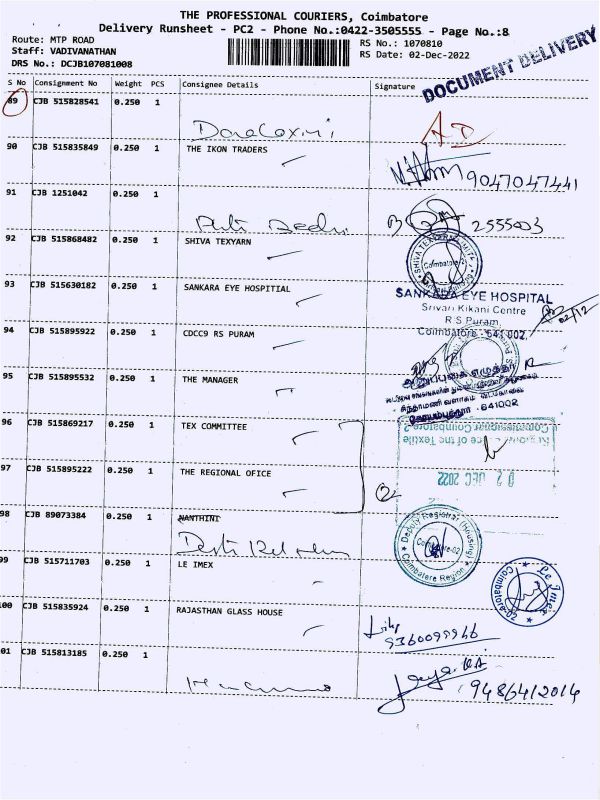 THE PROFESSIONAL COURIERS, Coimbatore
Delivery Runsheet - PC2 - Phone No.:0422-3505555 - Page No.:8
Route: MTP ROAD
Staff: VADIVANATHAN
DRS No.: DCJB107081008
RS No.: 1070810
RS Date: 02-Dec-2022
DOCUMENT DELIVERY
S No Consignment No Weight PCS Consignee Details Signature
89 CJB 515828541 0.250 1
90 CJB 515835849 0.250 1 THE IKON TRADERS
9047047441
91 CJB 1251042 0.250 1
92 CJB 515868482 0.250 1 SHIVA TEXYARN
Coimbatore
93 CJB 515630182 0.250 1 SANKARA EYE HOSPITIAL
SANKARA EYE HOSPITAL
Srivari Kikani Centre
R S Puram,
Coimbatore - 641 002.
02/12
94 CJB 515895922 0.250 1 CDCC9 RS PURAM
95 CJB 515895532 0.250 1 THE MANAGER
641002
96 CJB 515869217 0.250 1 TEX COMMITTEE
Regional Office of the Textile
Commissioner Coimbatore-2
02 DEC 2022
97 CJB 515895222 0.250 1 THE REGIONAL OFICE
98 CJB 89073384 0.250 1 NANTHINI
Deputy Registrar (Housing)
Coimbatore-02
Coimbatore Region
99 CJB 515711703 0.250 1 LE IMEX
Le Imex
Coimbatore
100 CJB 515835924 0.250 1 RAJASTHAN GLASS HOUSE
101 CJB 515813185 0.250 1
9486412014